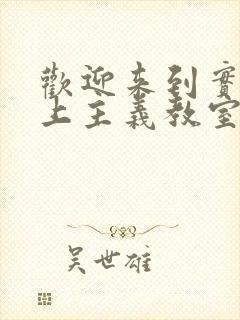 歡迎來到實
上主義教室
吴世雄